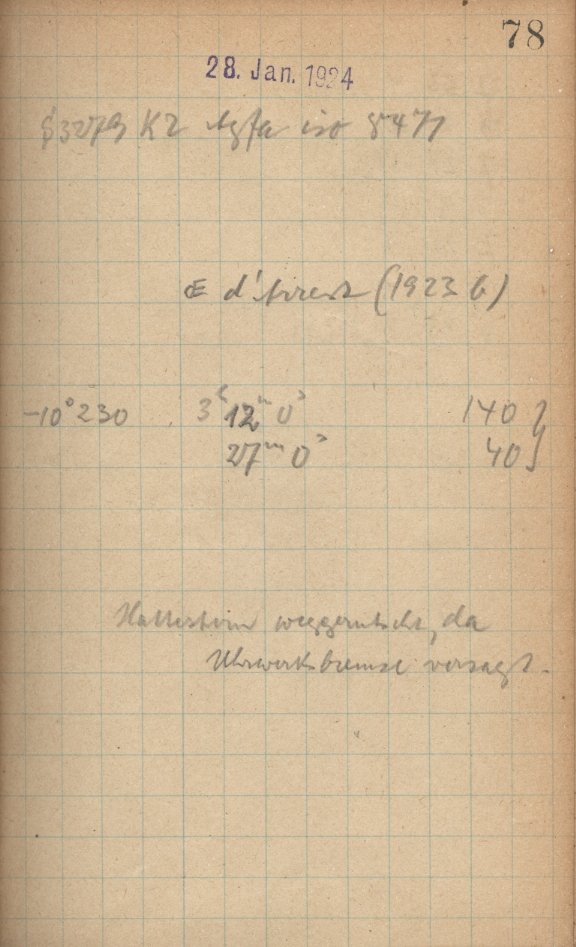 78
28. Jan. 1924
S3279 K2 Agfa iso 8471
Œ d'Arrest (1923 b)
-10°230 3ʰ 12ᵐ 0ˢ 140 }
27ᵐ 0ˢ 40 }
Haltestern weggerutscht, da
Uhrwerksbremse versagt.